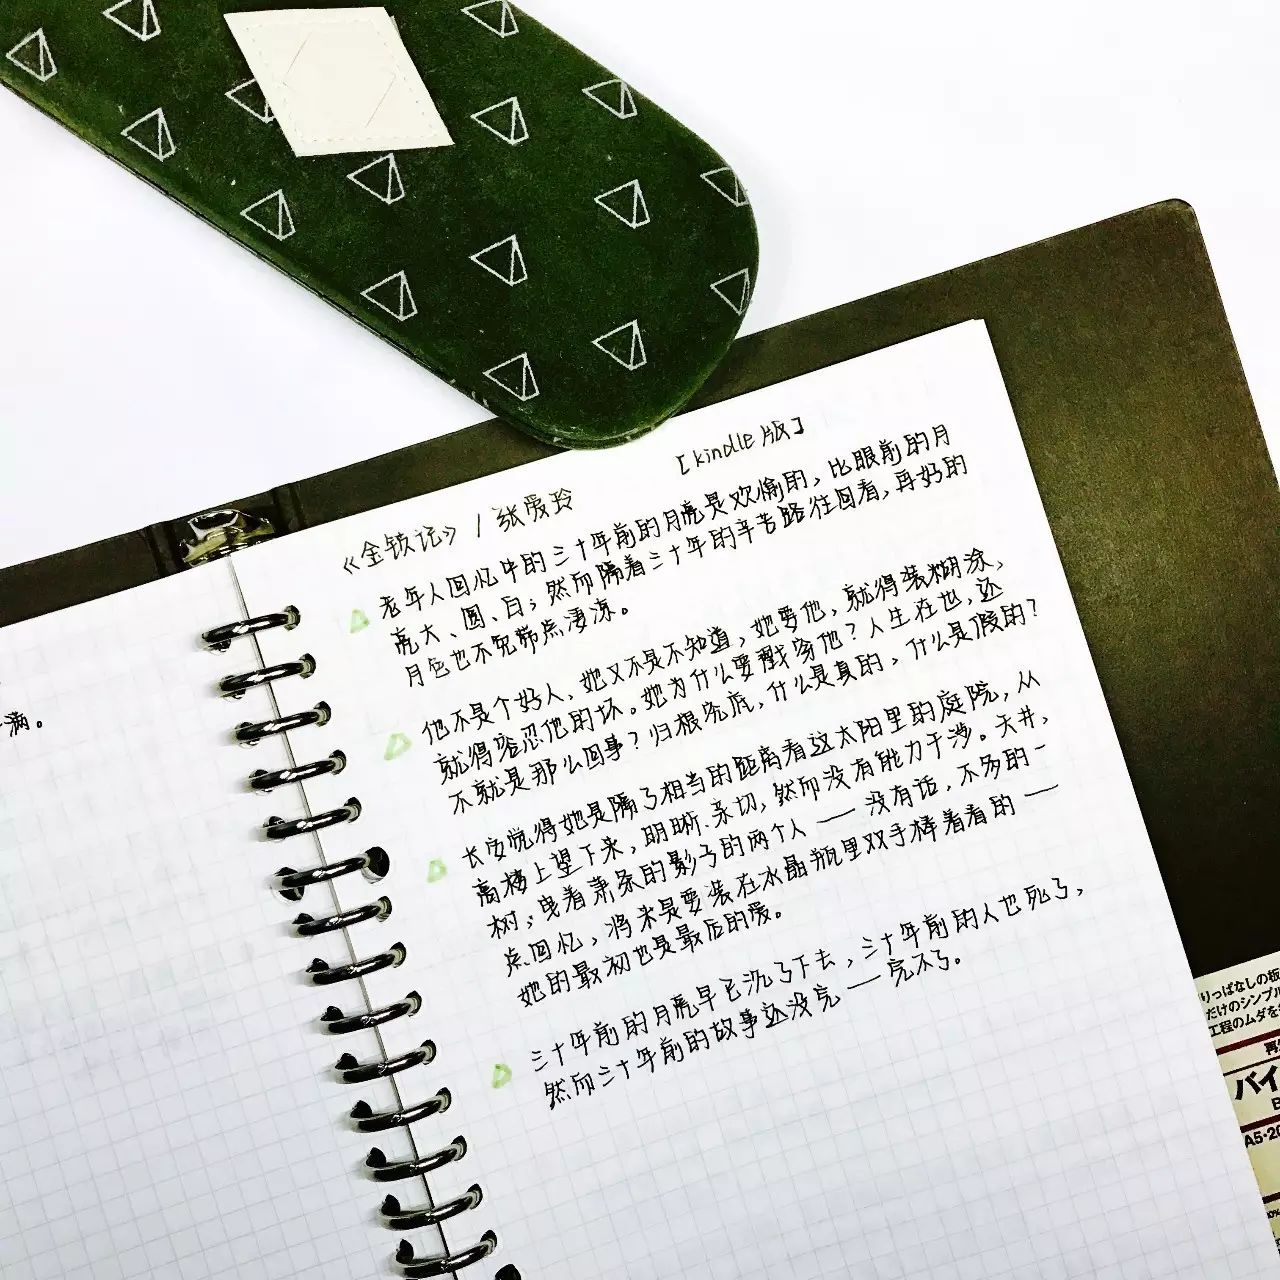 满。
《金锁记》/张爱玲
[kindle版]
老年人回忆中的三十年前的月亮是欢愉的，比眼前的月
亮大、圆、白；然而隔着三十年的辛苦路往回看，再好的
月色也不免带点凄凉。
他不是个好人，她又不是不知道，她要他，就得装糊涂，
就得容忍他的坏。她为什么要戳穿他？人生在世，还
不就是那么回事？归根究底，什么是真的，什么是假的？
长安觉得她是隔了相当的距离看这太阳里的庭院，从
高楼上望下来，明晰、亲切，然而没有能力干涉。天井，
树；曳着萧条的影子的两个人——没有话，不多的一
点回忆，将来是要装在水晶瓶里双手捧着看的——
她的最初也是最后的爱。
三十年前的月亮早已沉了下去，三十年前的人也死了，
然而三十年前的故事还没完——完不了。
りっぱなしの板
だけのシンプル
工程のムダを
再
バイ
A5・20